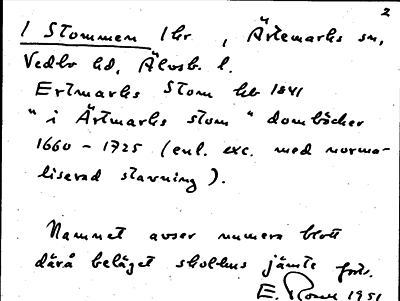 2
1 Stommen 1 hr , Ärtemarks sn,
Vedbo hd, Älvsb. l.
Ertmarks Stom hb 1841
"i Ärtmarks stom" domböcker
1660 - 1725 (enl. exc. med norma-
liserad stavning).
Namnet avser numera blott
därå beläget skolhus jämte
E. 1951